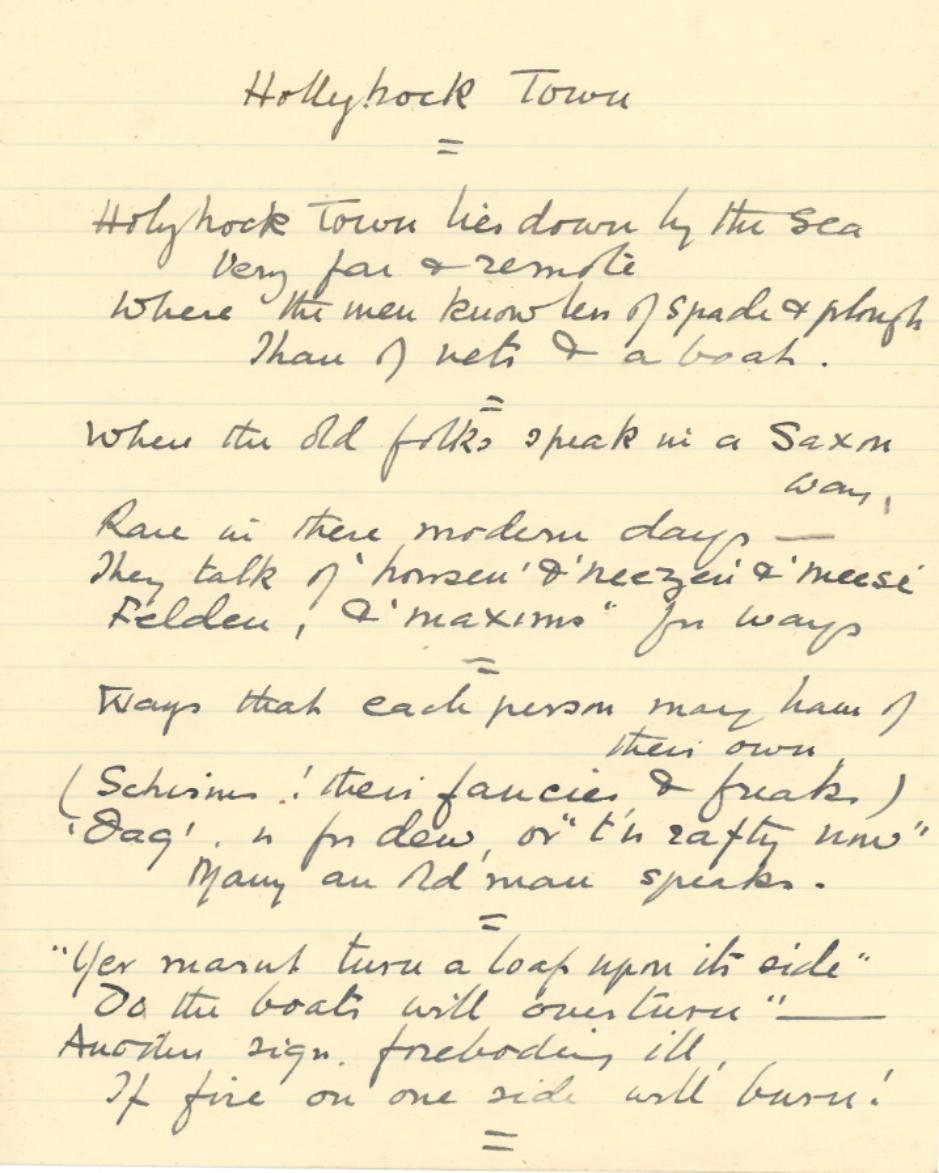 Hollyhock Town
=
Holyhock Town lies down by the Sea
Very far & remote
Where the men know less of spade & plough
Than of nets & a boat.
=
Where the old folks speak in a Saxon
way,
Rare in these modern days —
They talk of 'housen' & 'neezen' & 'meese'
Felden, & 'maxims" for ways
=
Ways that each person may have of
their own
(Schisms! their fancies & freaks)
'Dag'. is for dew, or "t'is rafty now"
Many an old man speaks.
=
"Yer marnt turn a loaf upon its side"
Do the boats will overturn" —
Another sign. foreboding ill,
If fire on one side will burn!
=